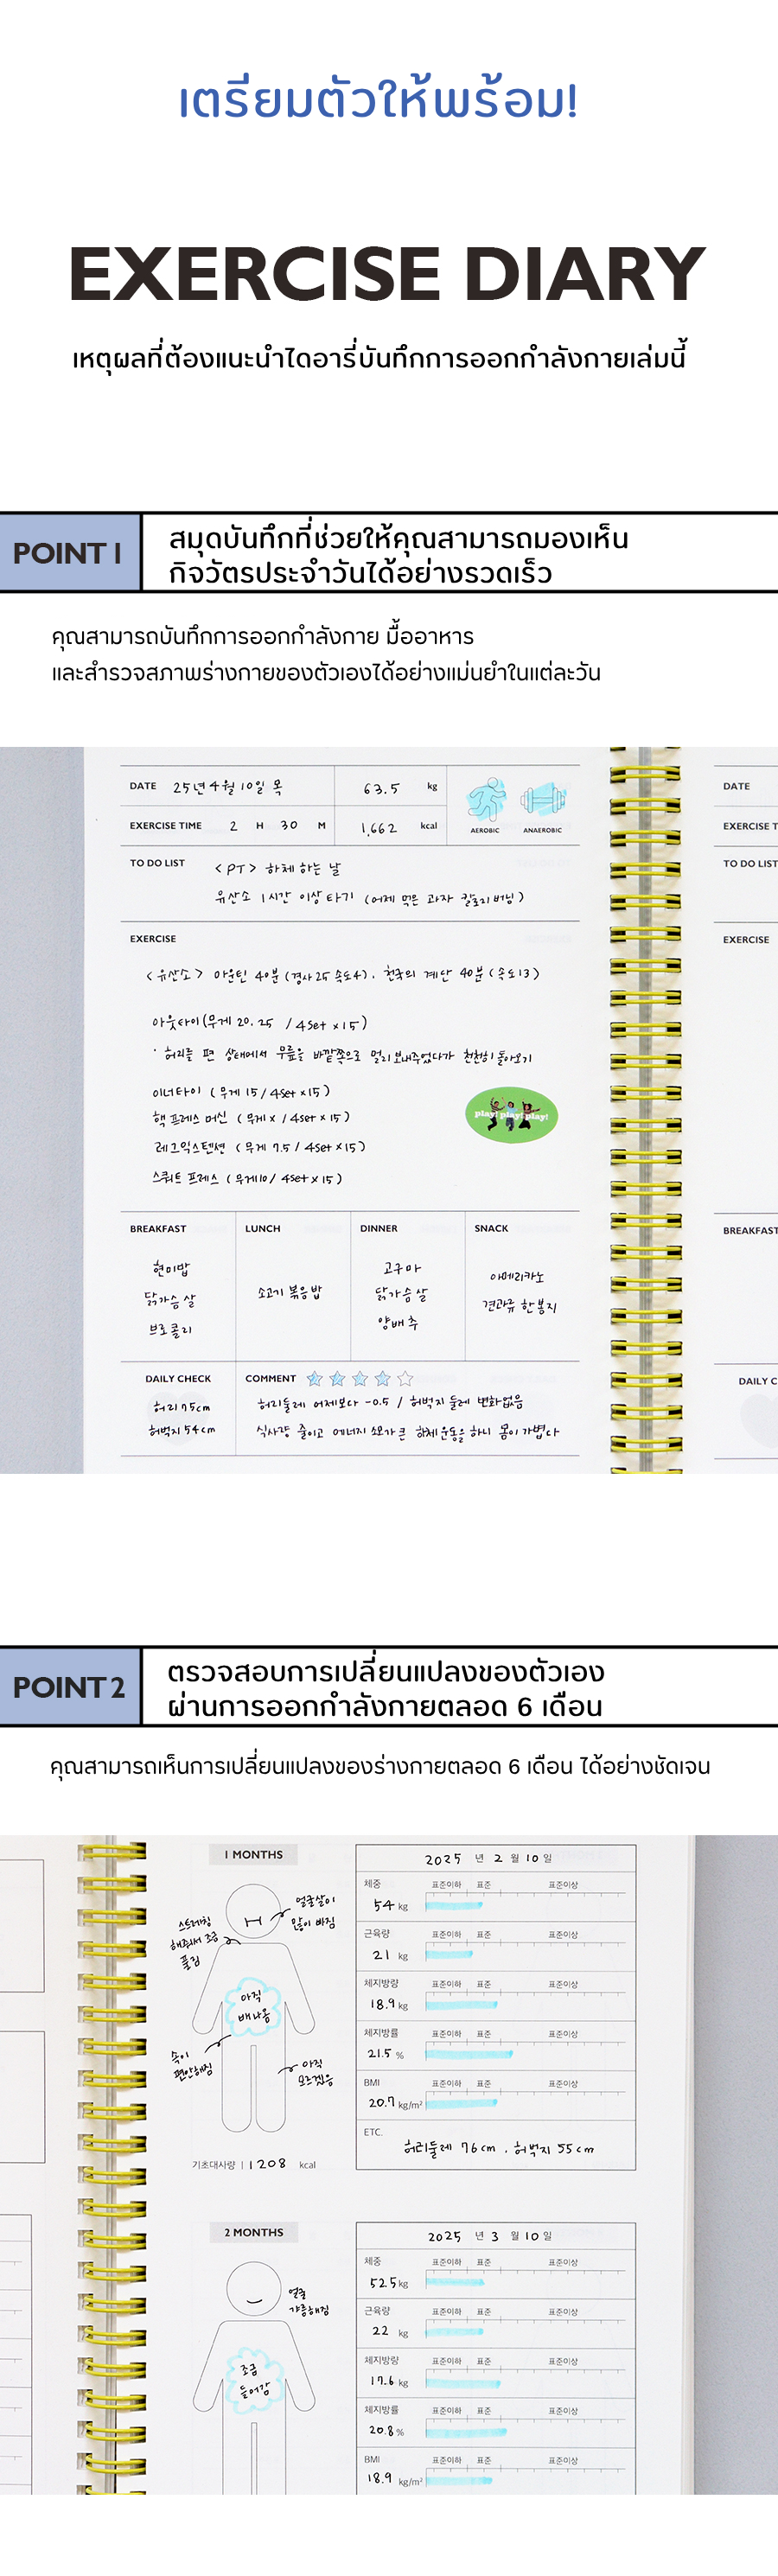 เตรียมตัวให้พร้อม!
EXERCISE DIARY
เหตุผลที่ต้องแนะนำไดอารี่บันทึกการออกกำลังกายเล่มนี้
POINT 1
สมุดบันทึกที่ช่วยให้คุณสามารถมองเห็น
กิจวัตรประจำวันได้อย่างรวดเร็ว
คุณสามารถบันทึกการออกกำลังกาย มื้ออาหาร
และสำรวจสภาพร่างกายของตัวเองได้อย่างแม่นยำในแต่ละวัน
DATE 25년 4월 10일 목 63.5 kg
EXERCISE TIME 2 H 30 M 1,662 kcal
AEROBIC ANAEROBIC
TO DO LIST <PT> 하체 하는 날
유산소 1시간 이상 타기 (어제 먹은 과자 칼로리 버닝)
EXERCISE
<유산소> 마운틴 40분 (경사 25 속도4), 천국의 계단 40분 (속도 13)
아웃타이 (무게 20, 25 / 4set x 15)
· 허리를 편 상태에서 무릎을 바깥쪽으로 멀리 보내주었다가 천천히 돌아오기
이너타이 (무게 15 / 4set x 15)
핵 프레스 머신 (무게 x / 4set x 15)
레그익스텐션 (무게 7.5 / 4set x 15)
스쿼트 프레스 (무게 10 / 4set x 15)
play! play! play!
BREAKFAST LUNCH DINNER SNACK
현미밥
닭가슴살
브로콜리
소고기 볶음밥
고구마
닭가슴살
양배추
아메리카노
견과류 한 봉지
DAILY CHECK
허리 75cm
허벅지 54cm
COMMENT
허리둘레 어제보다 -0.5 / 허벅지 둘레 변화없음
식사량 줄이고 에너지 소모가 큰 하체 운동을 하니 몸이 가볍다
DATE
EXERCISE T
TO DO LIST
EXERCISE
BREAKFAST
DAILY C
POINT 2
ตรวจสอบการเปลี่ยนแปลงของตัวเอง
ผ่านการออกกำลังกายตลอด 6 เดือน
คุณสามารถเห็นการเปลี่ยนแปลงของร่างกายตลอด 6 เดือน ได้อย่างชัดเจน
1 MONTHS
얼굴살이
많이 빠짐
스트레칭
해줘서 조금
풀림
아직
배나옴
속이
편안해짐
아직
모르겠음
기초대사량 | 1208 kcal
2025 년 2 월 10 일
체중 표준이하 표준 표준이상
54 kg
근육량 표준이하 표준 표준이상
21 kg
체지방량 표준이하 표준 표준이상
18.9 kg
체지방률 표준이하 표준 표준이상
21.5 %
BMI 표준이하 표준 표준이상
20.7 kg/m²
ETC.
허리둘레 76cm, 허벅지 55cm
2 MONTHS
얼굴
갸름해짐
조금
들어감
2025 년 3 월 10 일
체중 표준이하 표준 표준이상
52.5 kg
근육량 표준이하 표준 표준이상
22 kg
체지방량 표준이하 표준 표준이상
17.6 kg
체지방률 표준이하 표준 표준이상
20.8 %
BMI 표준이하 표준 표준이상
18.9 kg/m²